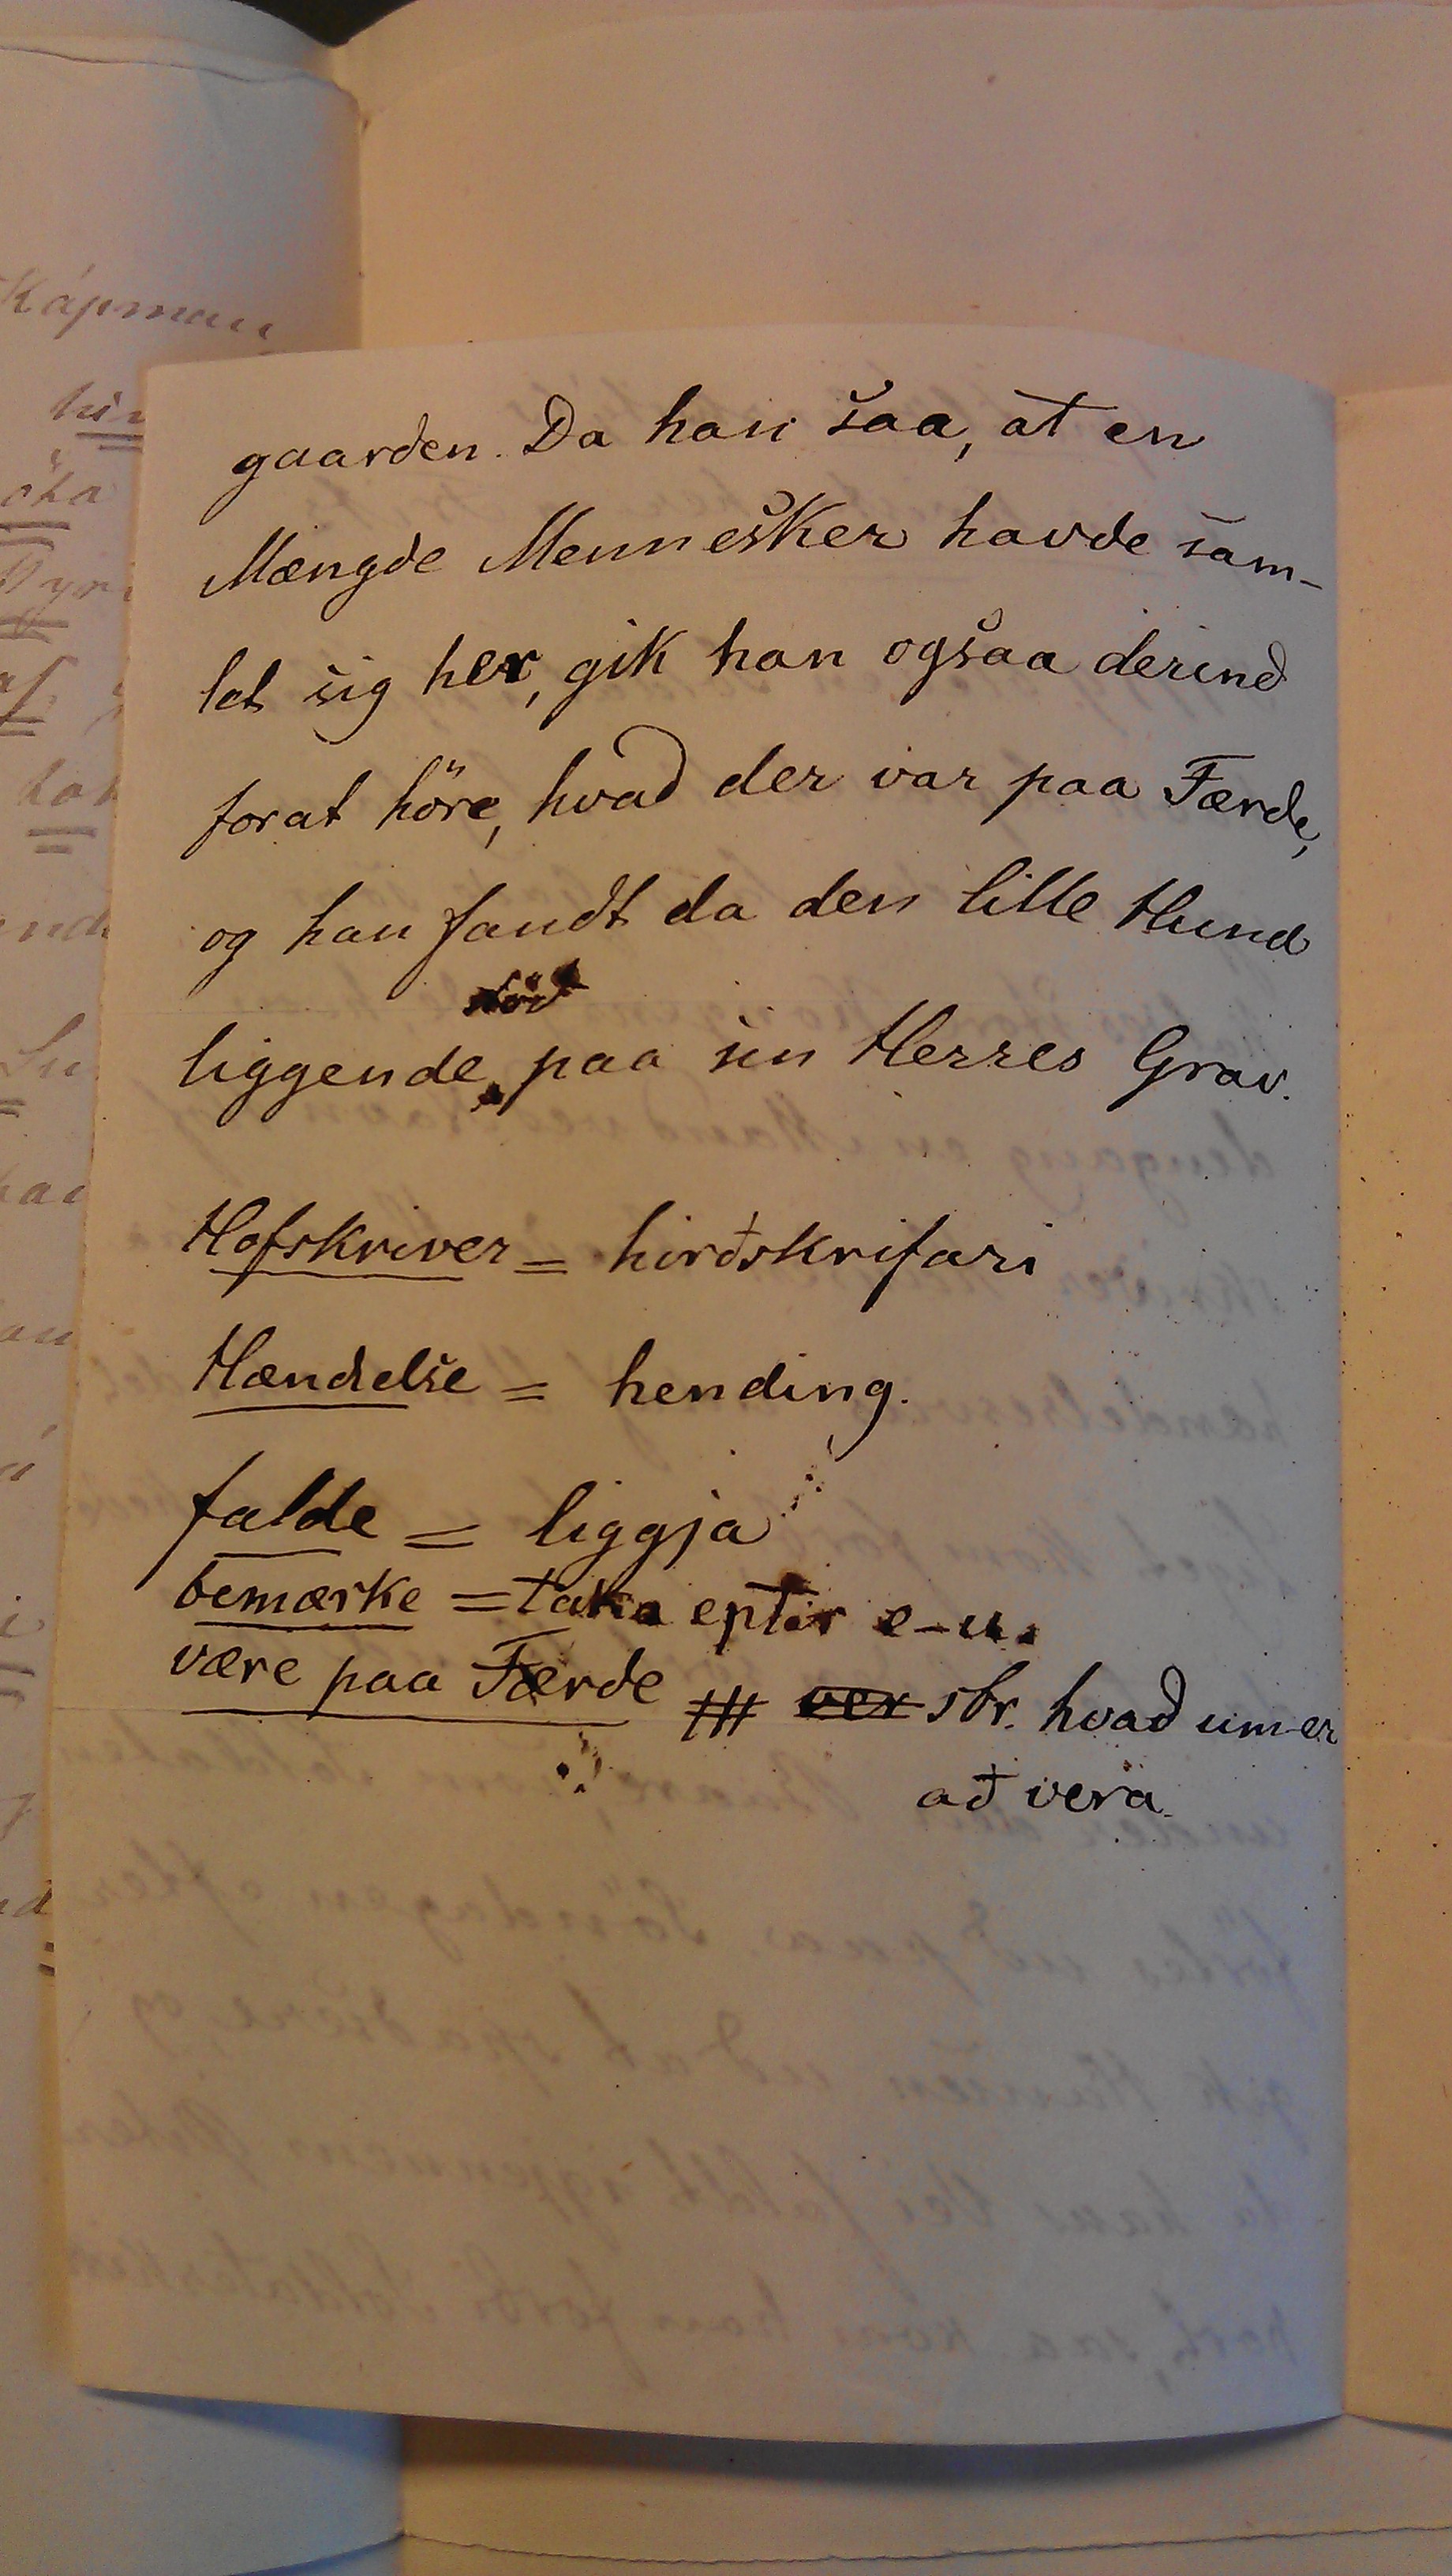 Kápman
gaarden. Da han saa, at en
Mængde Mennesker havde sam-
let sig her, gik han ogsaa derind
forat höre, hvad der var paa Færde,
og han fandt da den lille Hund
död
liggende paa sin Herres Grav.
Hofskriver = hirðskrifari
Hændelse = hending.
falde = liggja
bemærke = taka eptir e-u.
være paa Færde ver sbr. hvað um er
að vera.